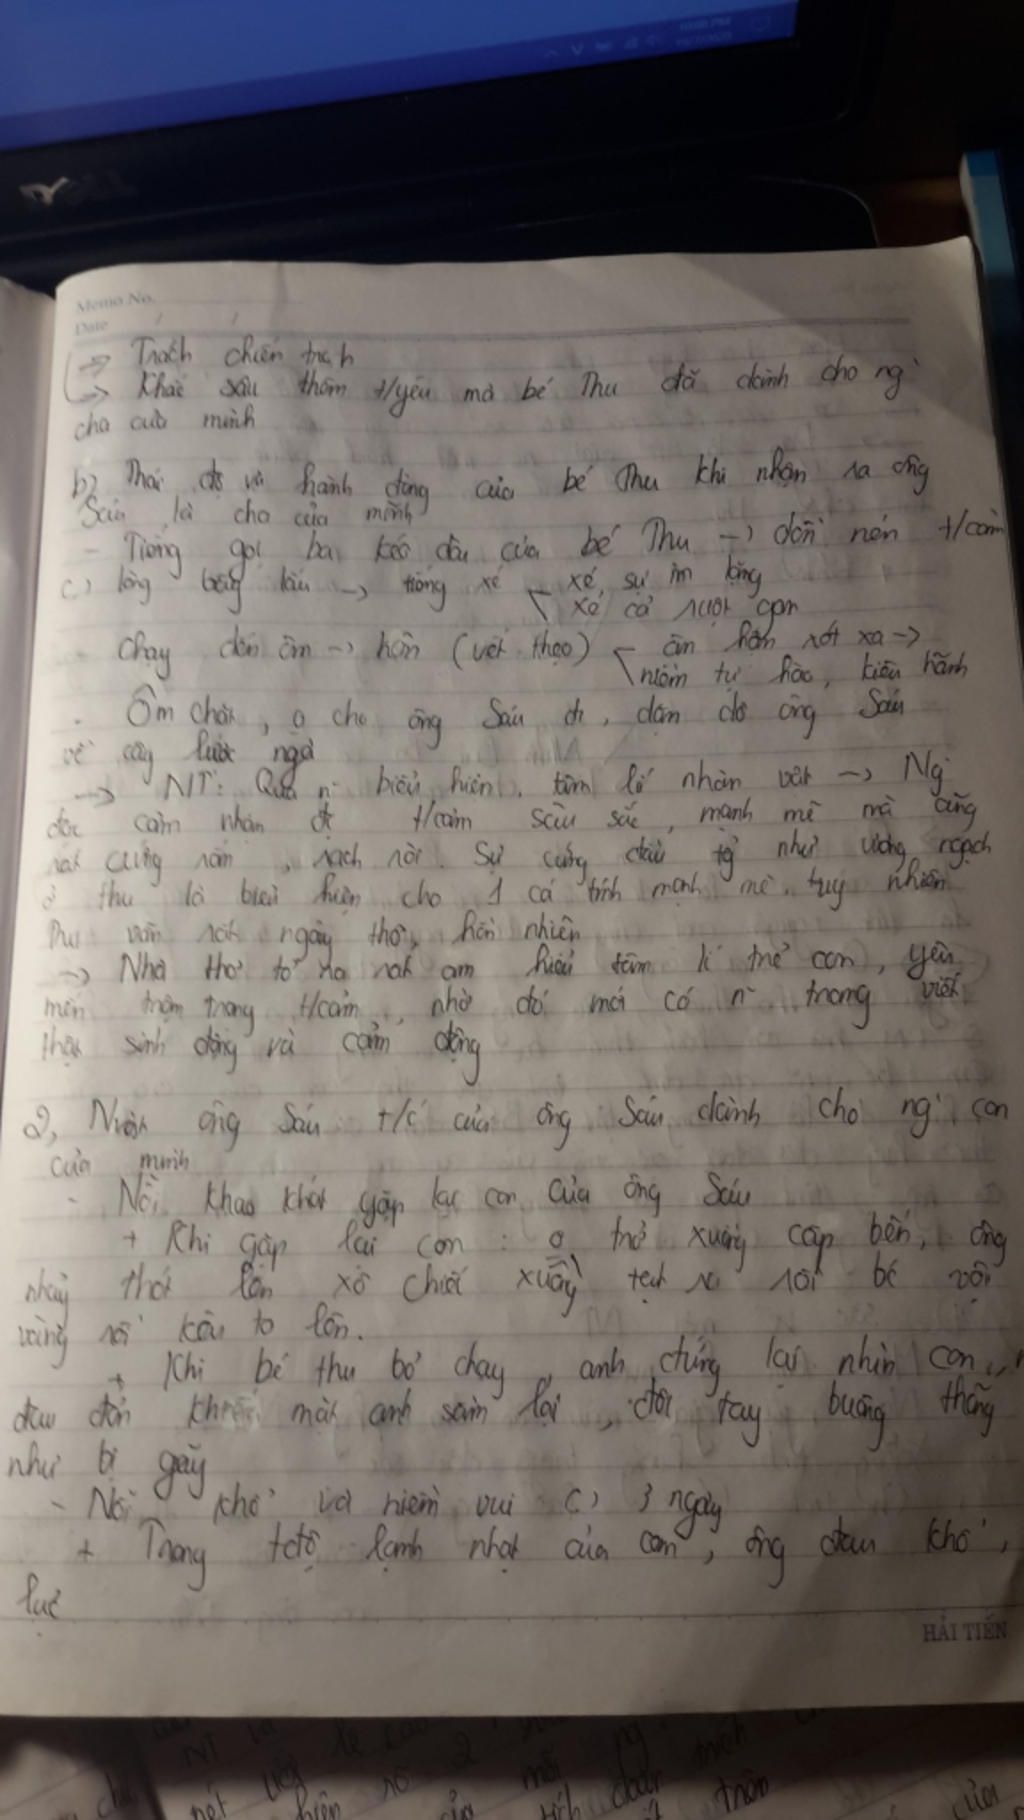 DELL
Memo No.
Date / /
-> Trách chiến tranh
-> Khắc sâu thêm t/yêu mà bé Thu đã dành cho ng`
cha của mình
b) Thái độ và hành động của bé Thu khi nhận ra ông
Sáu là cha của mình
- Tiếng gọi ba kéo dài của bé Thu -> dồn nén t/cảm
lòng bấy lâu -> tiếng xé xé sự im lặng
xé cả ruột gan
- Chạy đến ôm -> hôn (vết thẹo) ân hận xót xa ->
niềm tự hào, kiêu hãnh
- Ôm chặt, o cho ông Sáu đi, dặn dò ông Sáu
về cây lược ngà
-> NT: Qua n~ biểu hiện tâm lí nhân vật -> Ng`
đọc cảm nhận đc t/cảm sâu sắc, mạnh mẽ mà cũng
rất cứng rắn, rạch ròi. Sự cứng đầu tg như ương ngạch
ở thu là biểu hiện cho 1 cá tính mạnh mẽ, tuy nhiên
Thu vẫn rất ngây thơ, hồn nhiên
-> Nhà thơ tỏ ra rất am hiểu tâm lí trẻ con, yêu
mến trân trọng t/cảm, nhờ đó mới có n~ trang viết
thật sinh động và cảm động
2, Nvật ông Sáu t/c của ông Sáu dành cho ng` con
của mình
- Nỗi khao khát gặp lại con của ông Sáu
+ Khi gặp lại con: o trở xuồng cập bến, ông
nhảy thót lên xô chiếc xuồng tạt ra rồi bé vội
vàng rồi kêu to lên.
+ Khi bé thu bỏ chạy, anh đứng lại nhìn con,
đau đớn khiến mặt anh sầm lại, đôi tay buông thõng
như bị gãy
- Nỗi khổ và niềm vui 3 ngày
+ Trong tđộ lạnh nhạt của con, ông đau khổ,
HẢI TIẾN